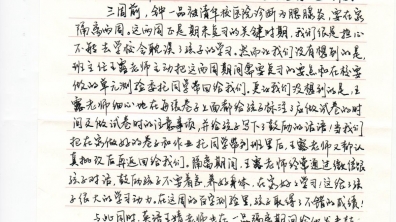 三周前，钟一品被清华校医院诊断为腮腺炎，需在家
隔离两周。这两周正是期末复习的关键时期，我们很是担心
不能去学校会耽误了孩子的学习。然而让我们没有想到的是，
班主任王露老师主动把这两周期间需要复习的要点和在校要
做的单元测验委托同学带回给我们。更让我们没有想到的是，王
露老师细心地在每张卷子上面都给孩子标注了应做试卷的时
间及做试卷时的注意事项，并给孩子写下了鼓励的话语！当我们
把在家做好的卷子和作业托同学带到班里后，王露老师又都认
真批改后再返回给我们。隔离期间，王露老师经常通过微信跟
孩子对话，鼓励孩子不要着急，养好身体，在家好好学习，这给了孩
子很大的学习动力，在这周的百字测验里，孩子取得了不错的成绩！
与此同时，英语老师也在一品隔离期间给他